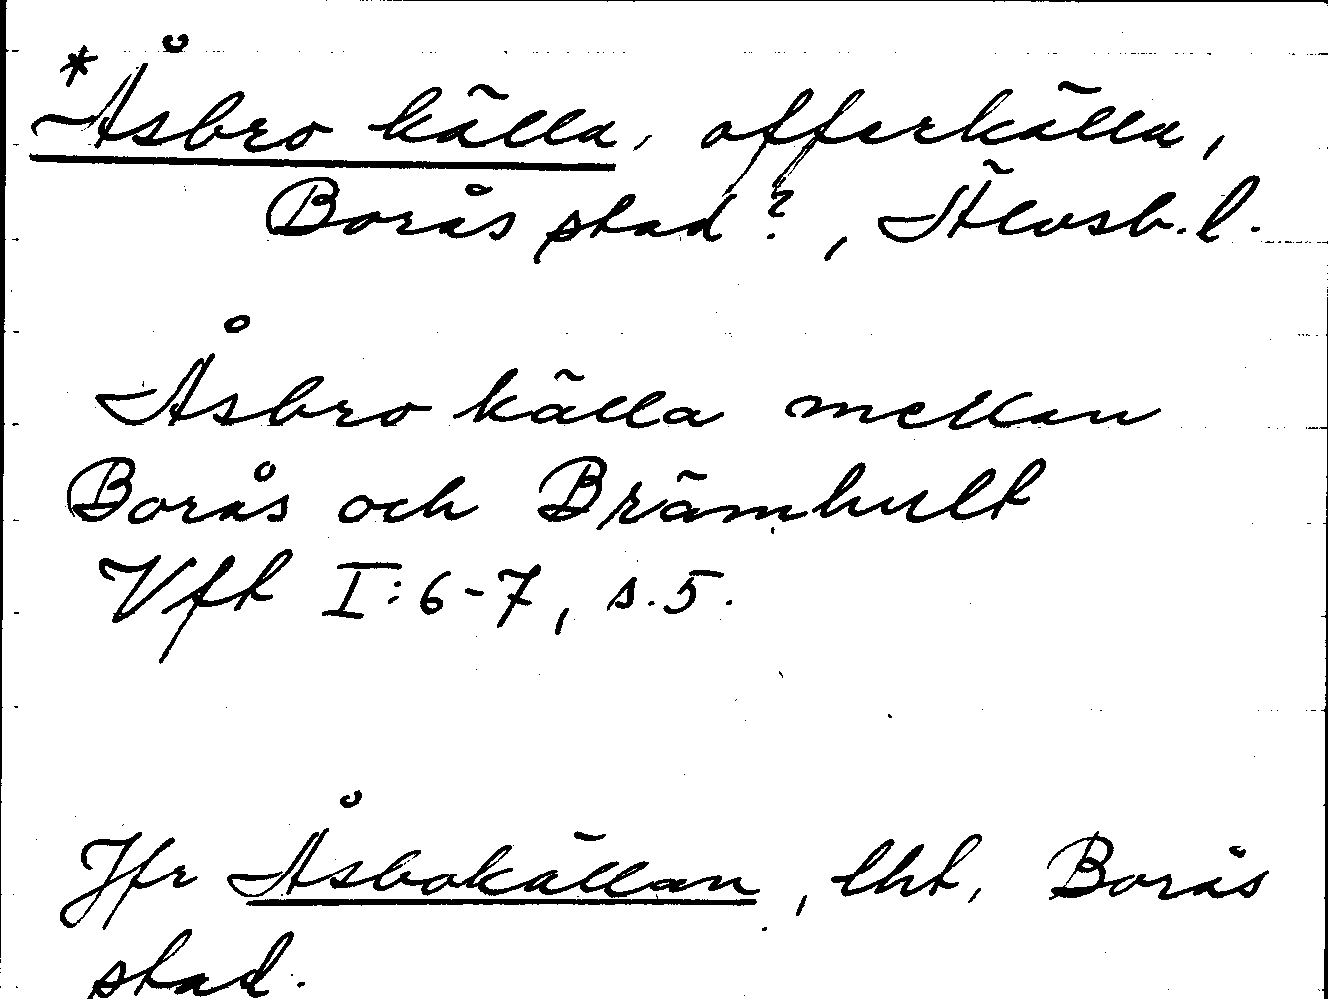 *Åsbro källa, offerkälla,
Borås stad?, Älvsb. l.
Åsbro källa mellan
Borås och Brämhult
Vft I:6-7, s.5.
Jfr Åsbokällan, lht, Borås
stad.